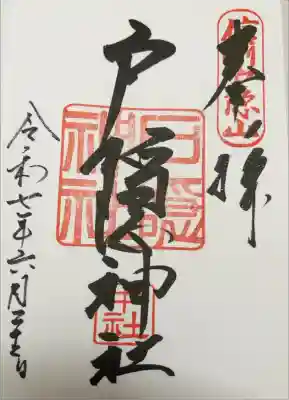 奉拝
信州戸隠山
戸隠神社
戸隠神社
中社
令和七年六月